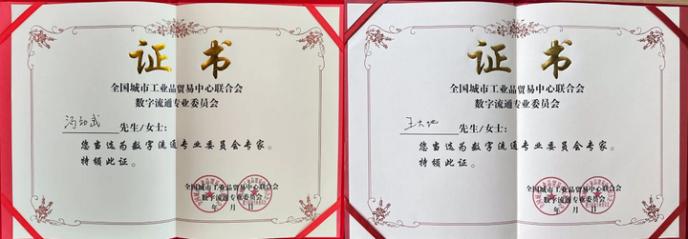 证书
全国城市工业品贸易中心联合会
数字流通专业委员会
先生/女士：
您当选为数字流通专业委员会专家。
特颁此证。
全国城市工业品贸易中心联合会
数字流通专业委员会
年 月 日
证书
全国城市工业品贸易中心联合会
数字流通专业委员会
先生/女士：
您当选为数字流通专业委员会专家。
特颁此证。
全国城市工业品贸易中心联合会
数字流通专业委员会
年 月 日